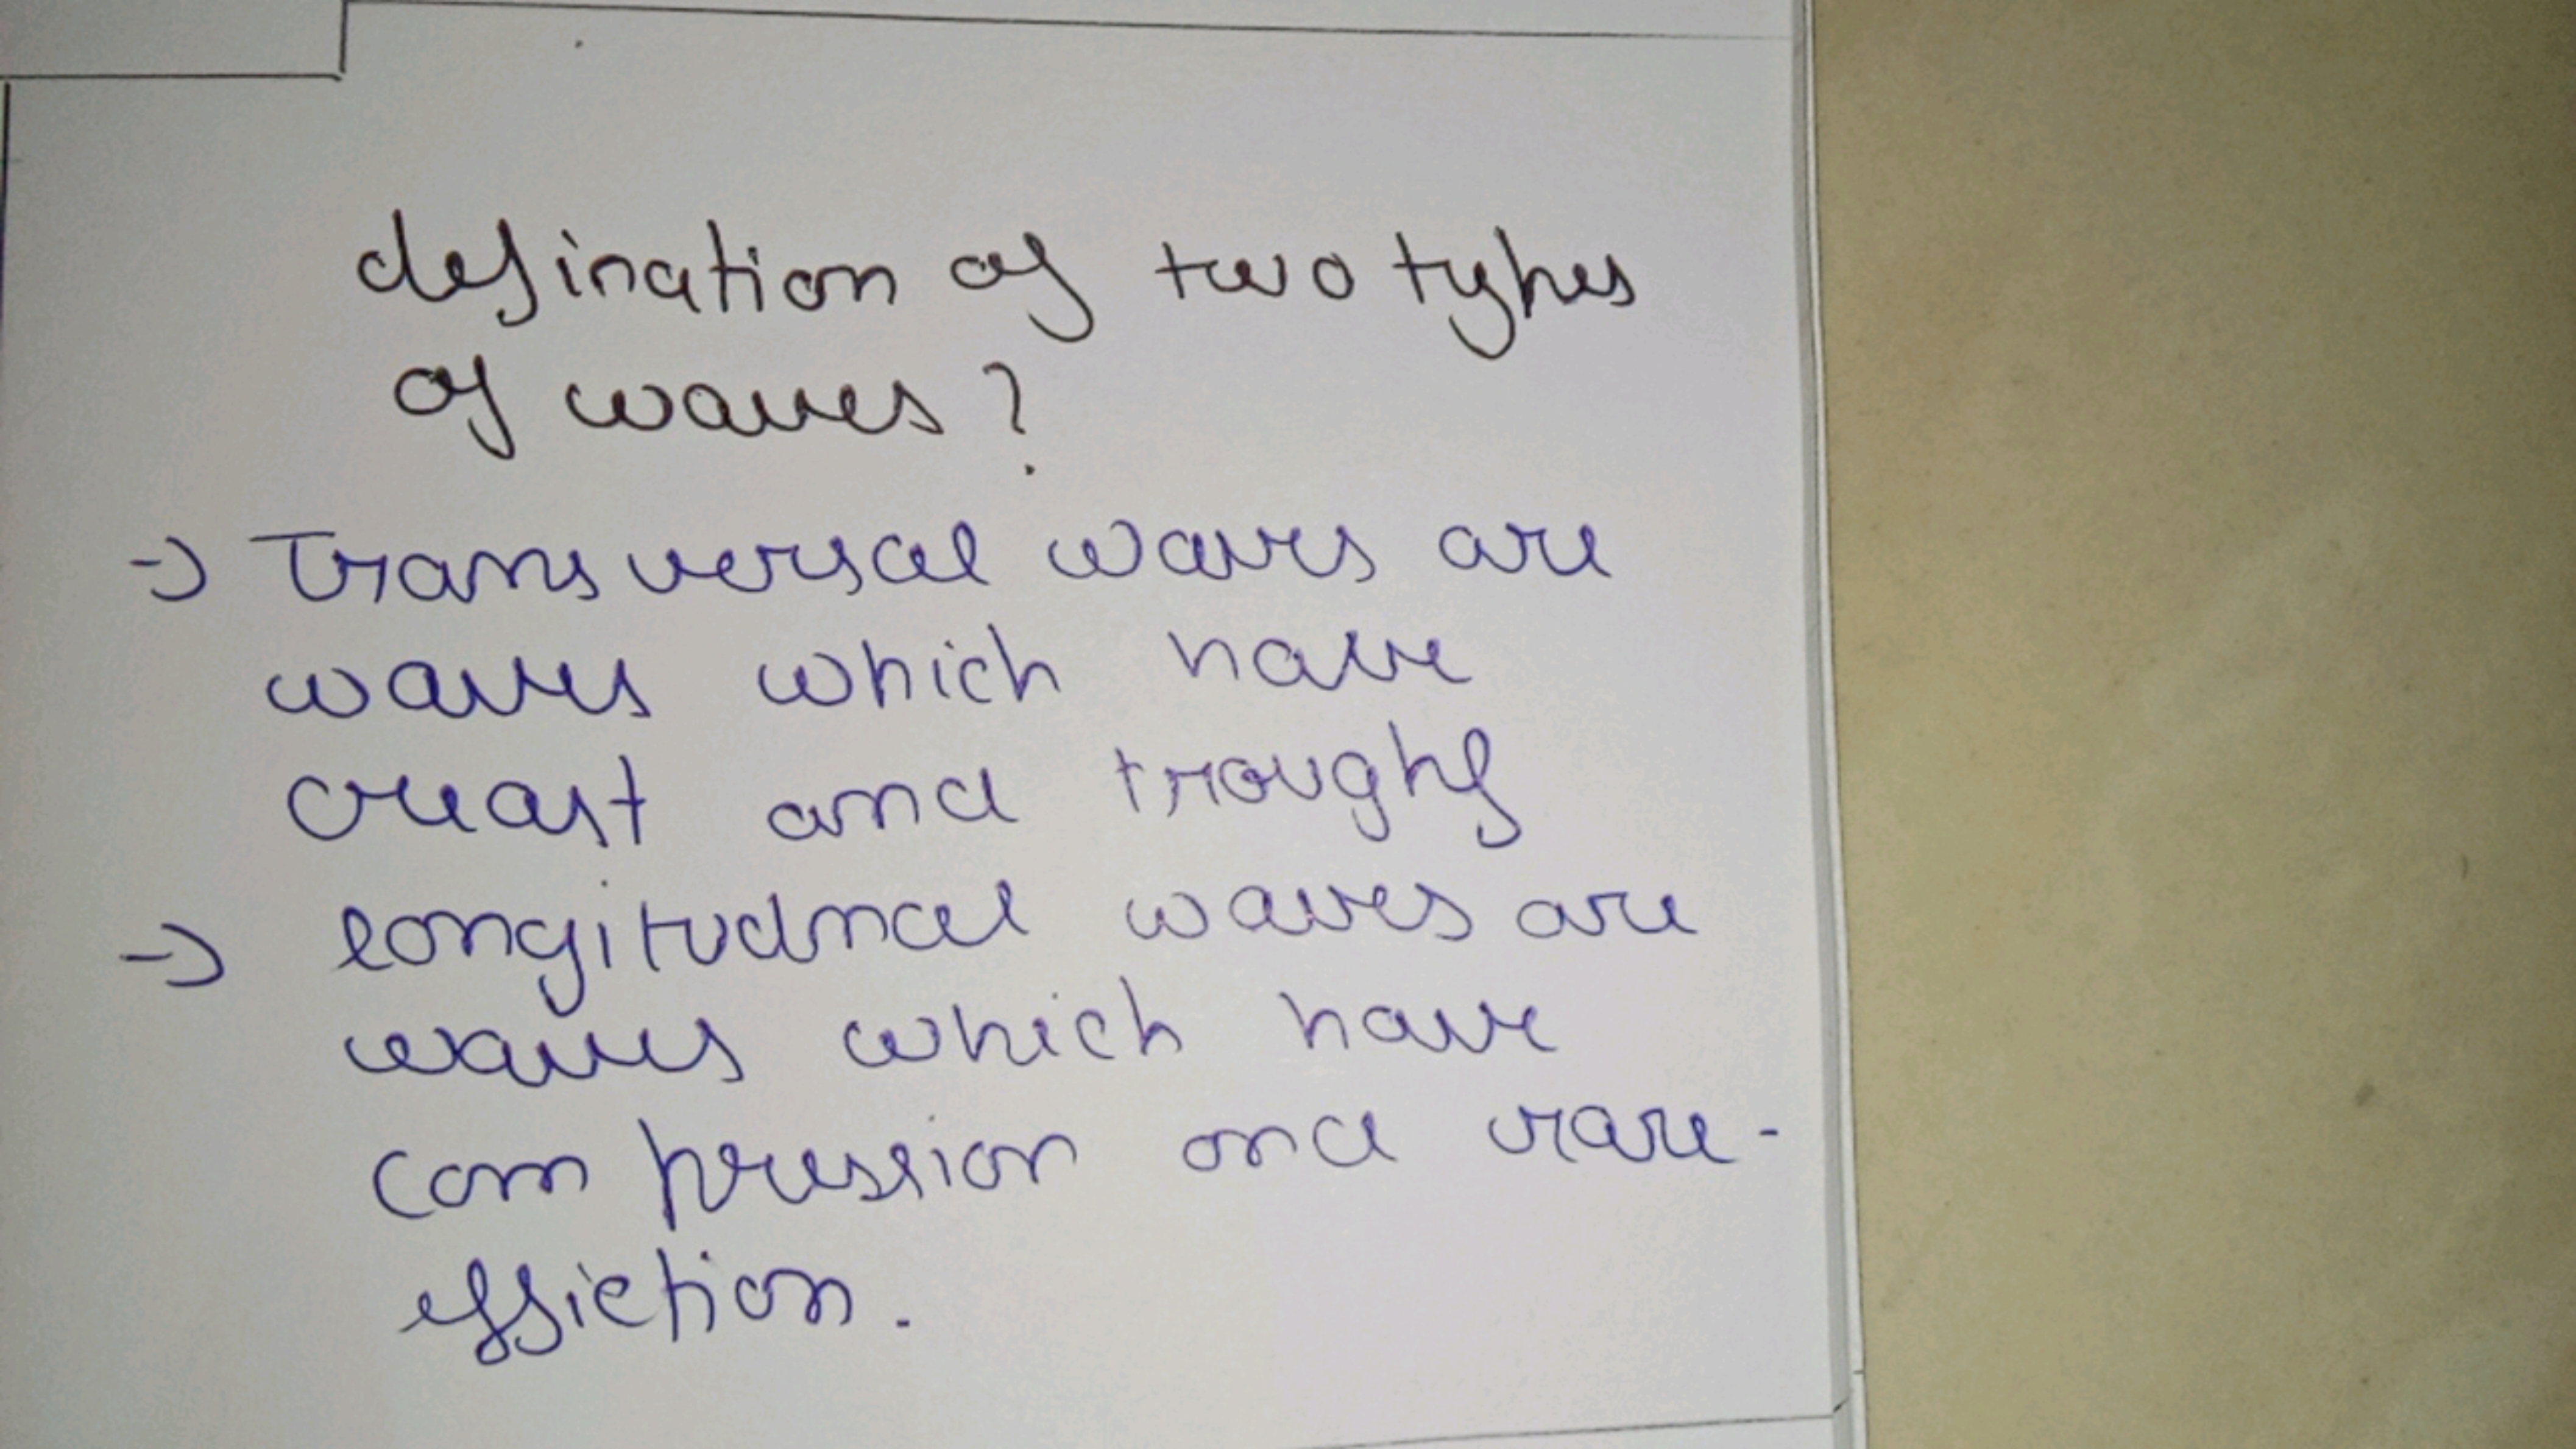 defination of two types
of waves?
→ Transversal waves are
waves which have
creast and troughs
→ longitudnal waves are
waves which have
compression and rare-
effiction.